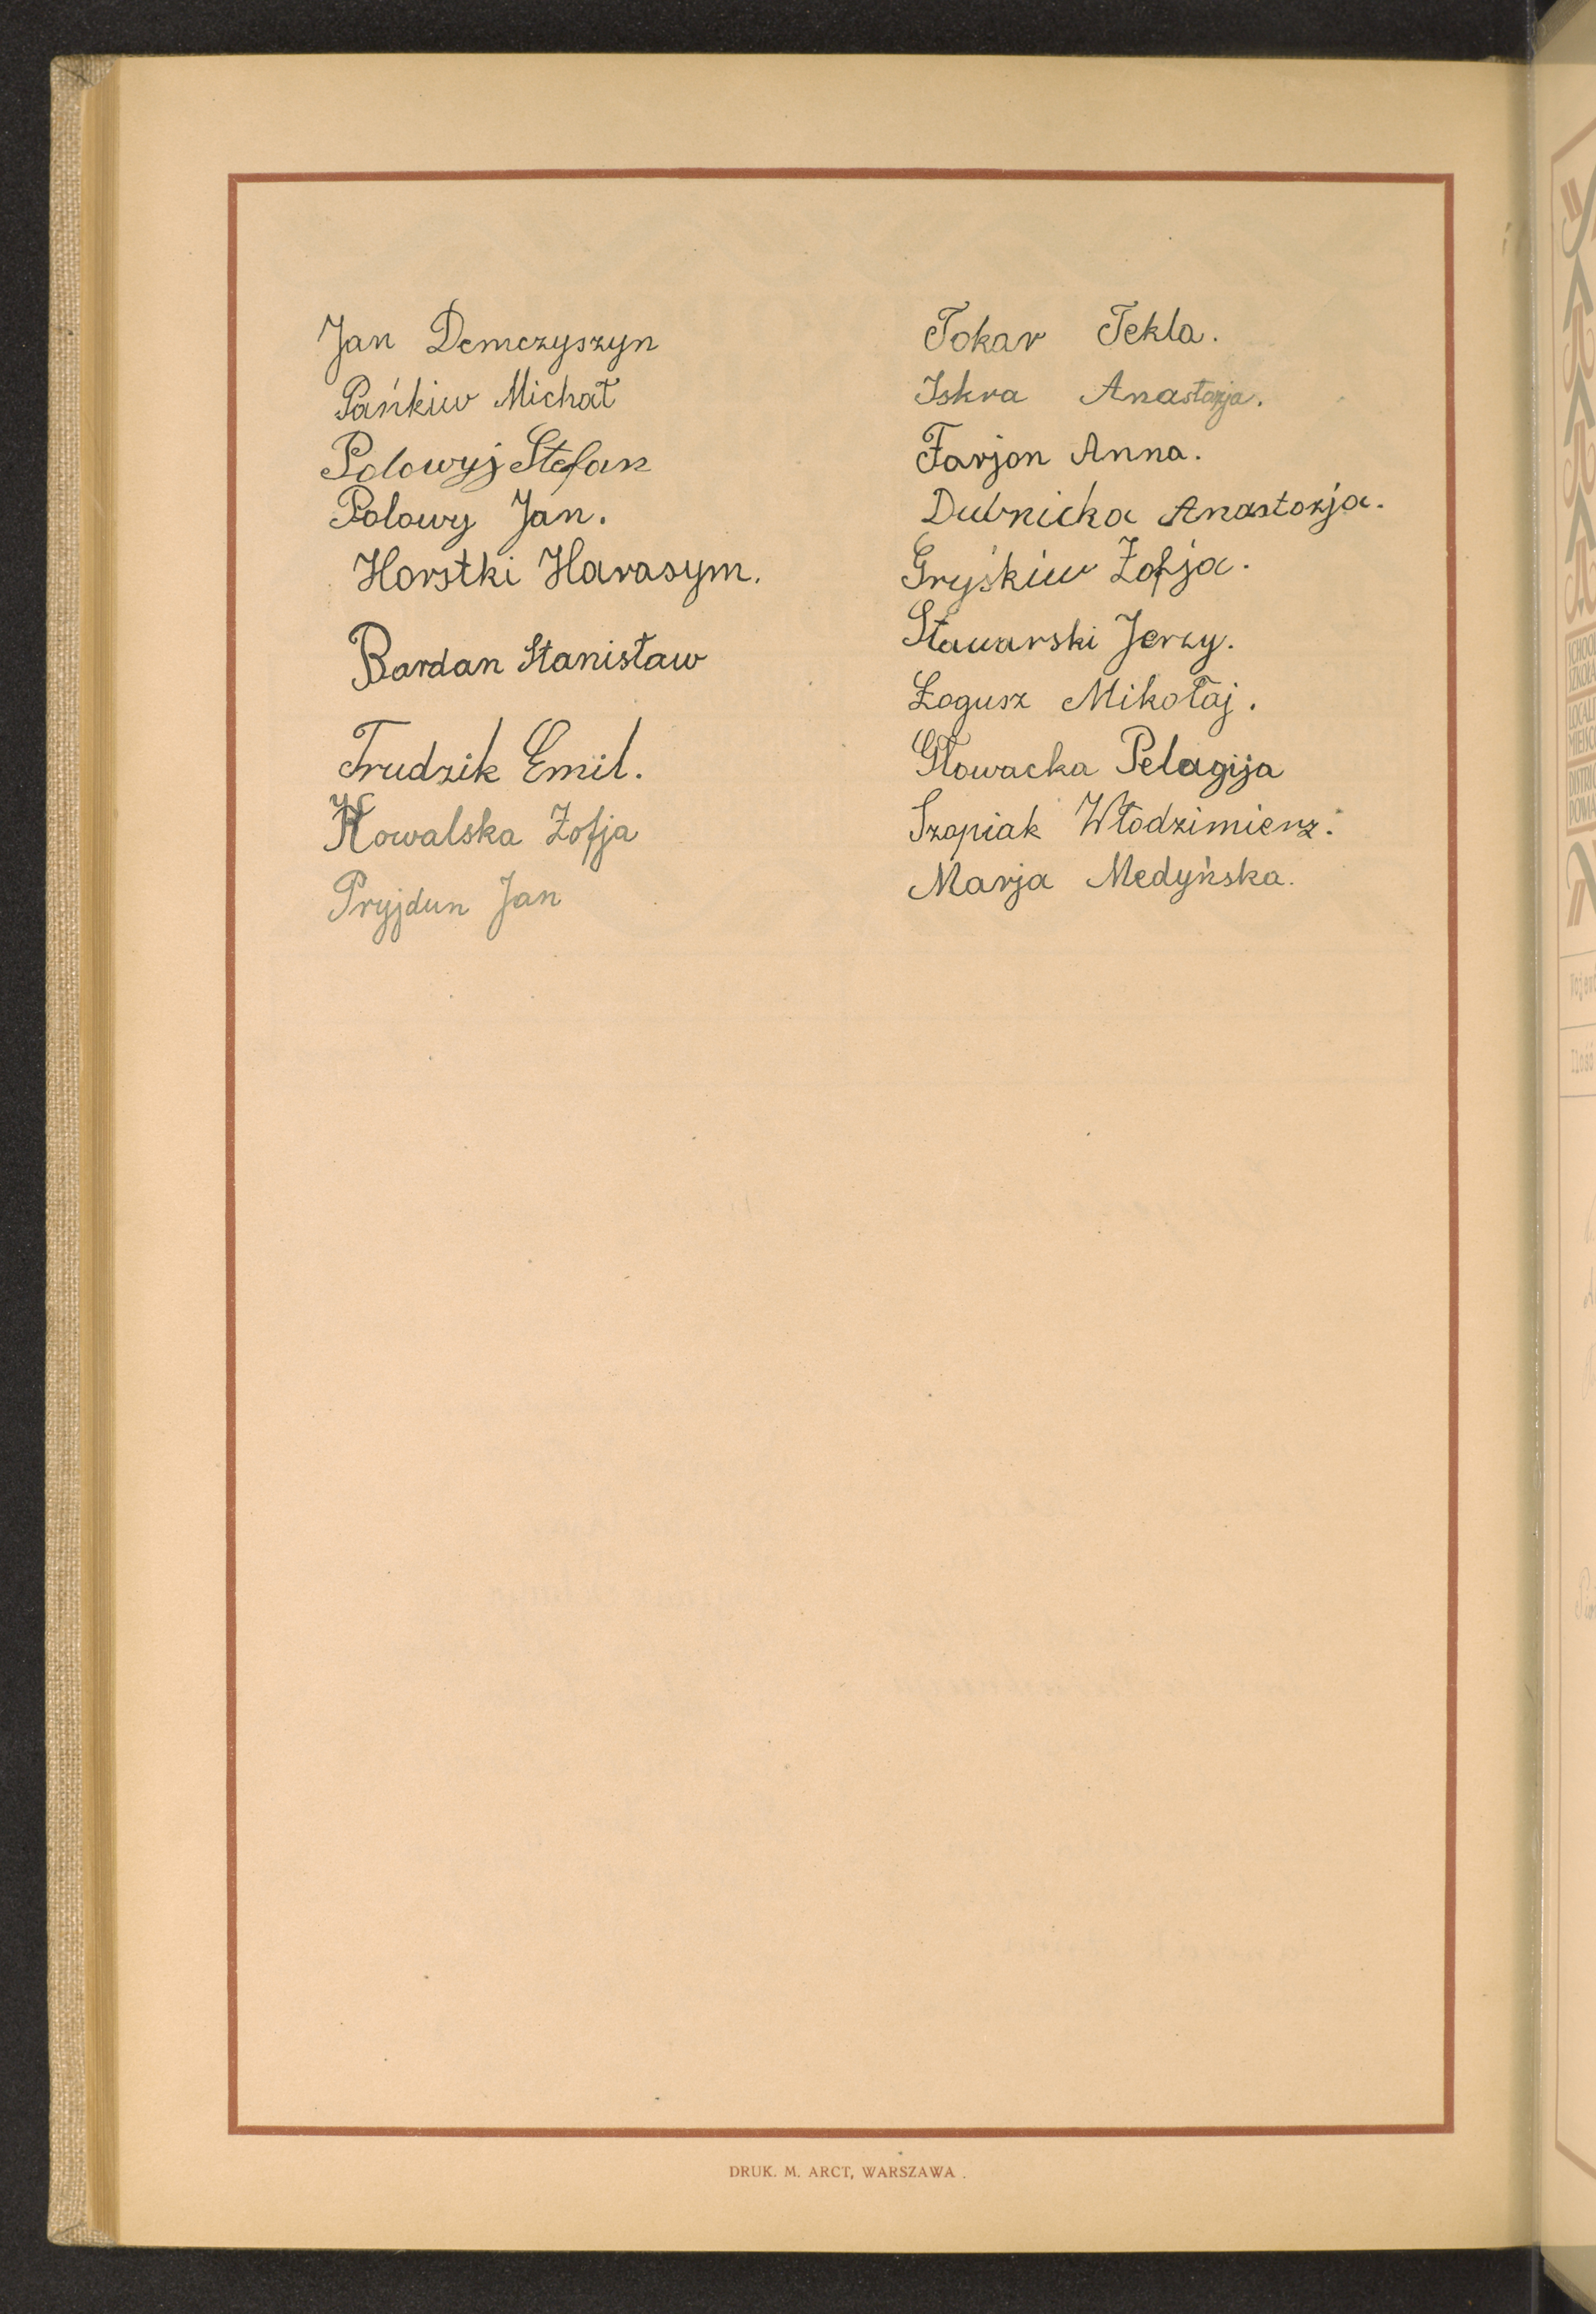 Jan Demczyszyn
Pańkiw Michał
Polowyj Stefan
Polowy Jan.
Horstki Harasym.
Bardan Stanisław
Trudzik Emil.
Kowalska Zofja
Pryjdun Jan
Tokar Tekla.
Iskra Anastazja.
Farjon Anna.
Dubnicka Anastazja.
Gryśkiw Zofja.
Stawarski Jerzy.
Łogusz Mikołaj.
Głowacka Pelagija
Szopiak Włodzimierz.
Marja Medyńska.
DRUK. M. ARCT, WARSZAWA.